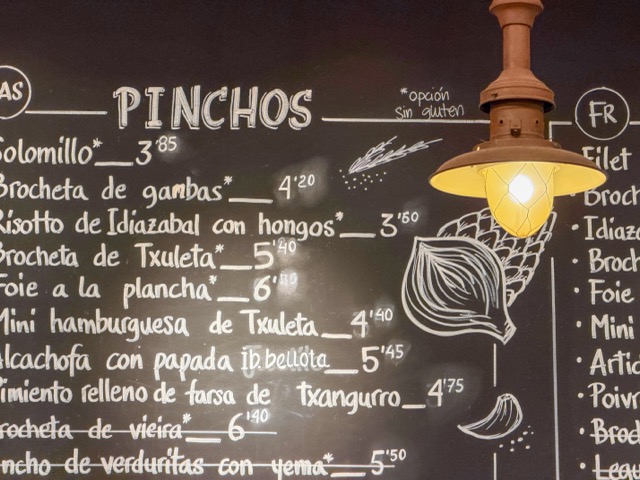 AS
PINCHOS
*opción
sin gluten
FR
Solomillo* 3'85
Brocheta de gambas* 4'20
Risotto de Idiazabal con hongos* 3'50
Brocheta de Txuleta* 5'40
Foie a la plancha* 6'
Mini hamburguesa de Txuleta 4'40
Alcachofa con papada ib.bellota 5'45
imiento relleno de farsa de txangurro 4'75
rocheta de vieira* 6'40
ncho de verduritas con yema* 5'50
Filet
Broch
· Idiaza
· Broch
· Foie
· Mini
· Artic
· Poivr
· Broc
· Legu